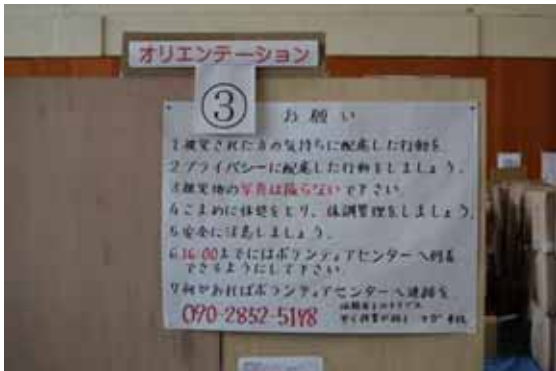 オリエンテーション
③
お願い
1 被災された方の気持ちに配慮した行動を
2 プライバシーに配慮した行動をしましょう。
3 被災地の写真は撮らないで下さい。
4 こまめに休憩をとり、体調管理をしましょう。
5 安全に注意しましょう。
6 16:00までにはボランティアセンターへ到着
できるようにして下さい。
7 何かあればボランティアセンターへ連絡を
090-2852-5198